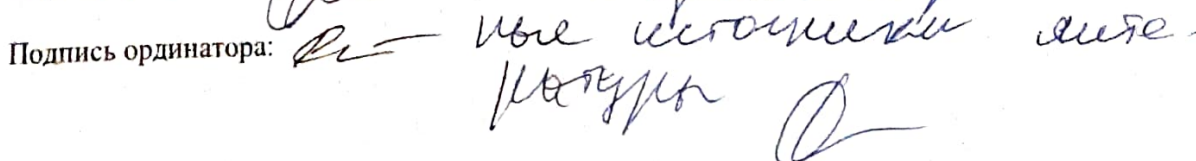 Подпись ординатора: ные источники лите-
ратуры